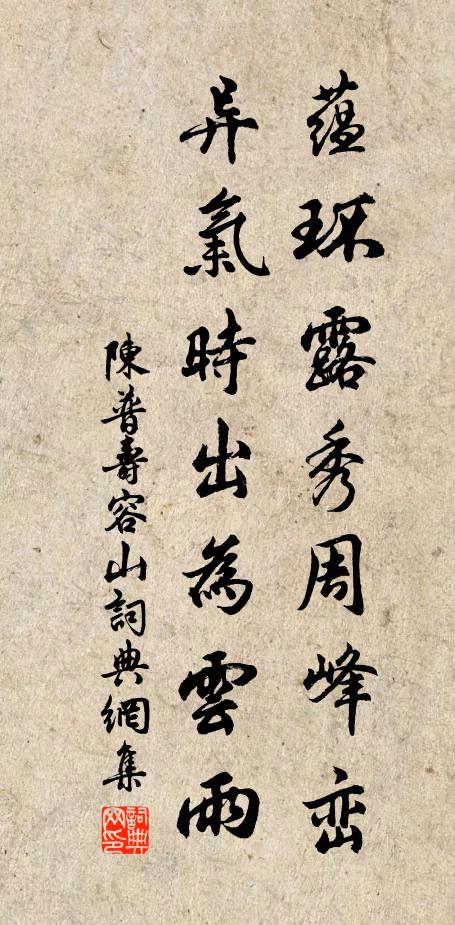 蕴环露秀周峰峦
异氣時出為雲雨
陳普壽容山詞典網集
詞典网印